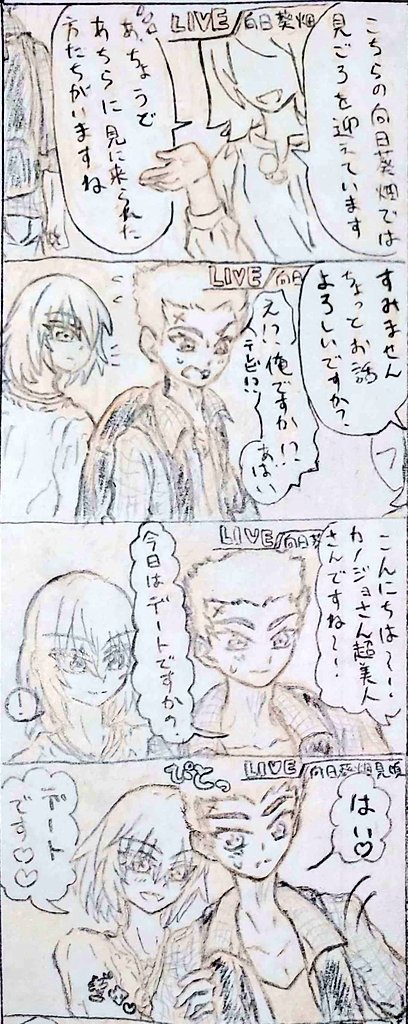 LIVE/向日葵畑
こちらの向日葵畑では
見ごろを迎えています
あ、ちょうど
あちらに見に来られた
方たちがいますね
LIVE/向日
すみません
ちょっとお話
よろしいですか?
え!?俺ですか!?
テレビ!?
あはい
LIVE/向日葵
こんにちは〜!!
カノジョさん超美人
さんですね〜!!
今日はデートですか?
!
LIVE/向日葵畑見頃
はい♡
ぴとっ
デート
です♡♡